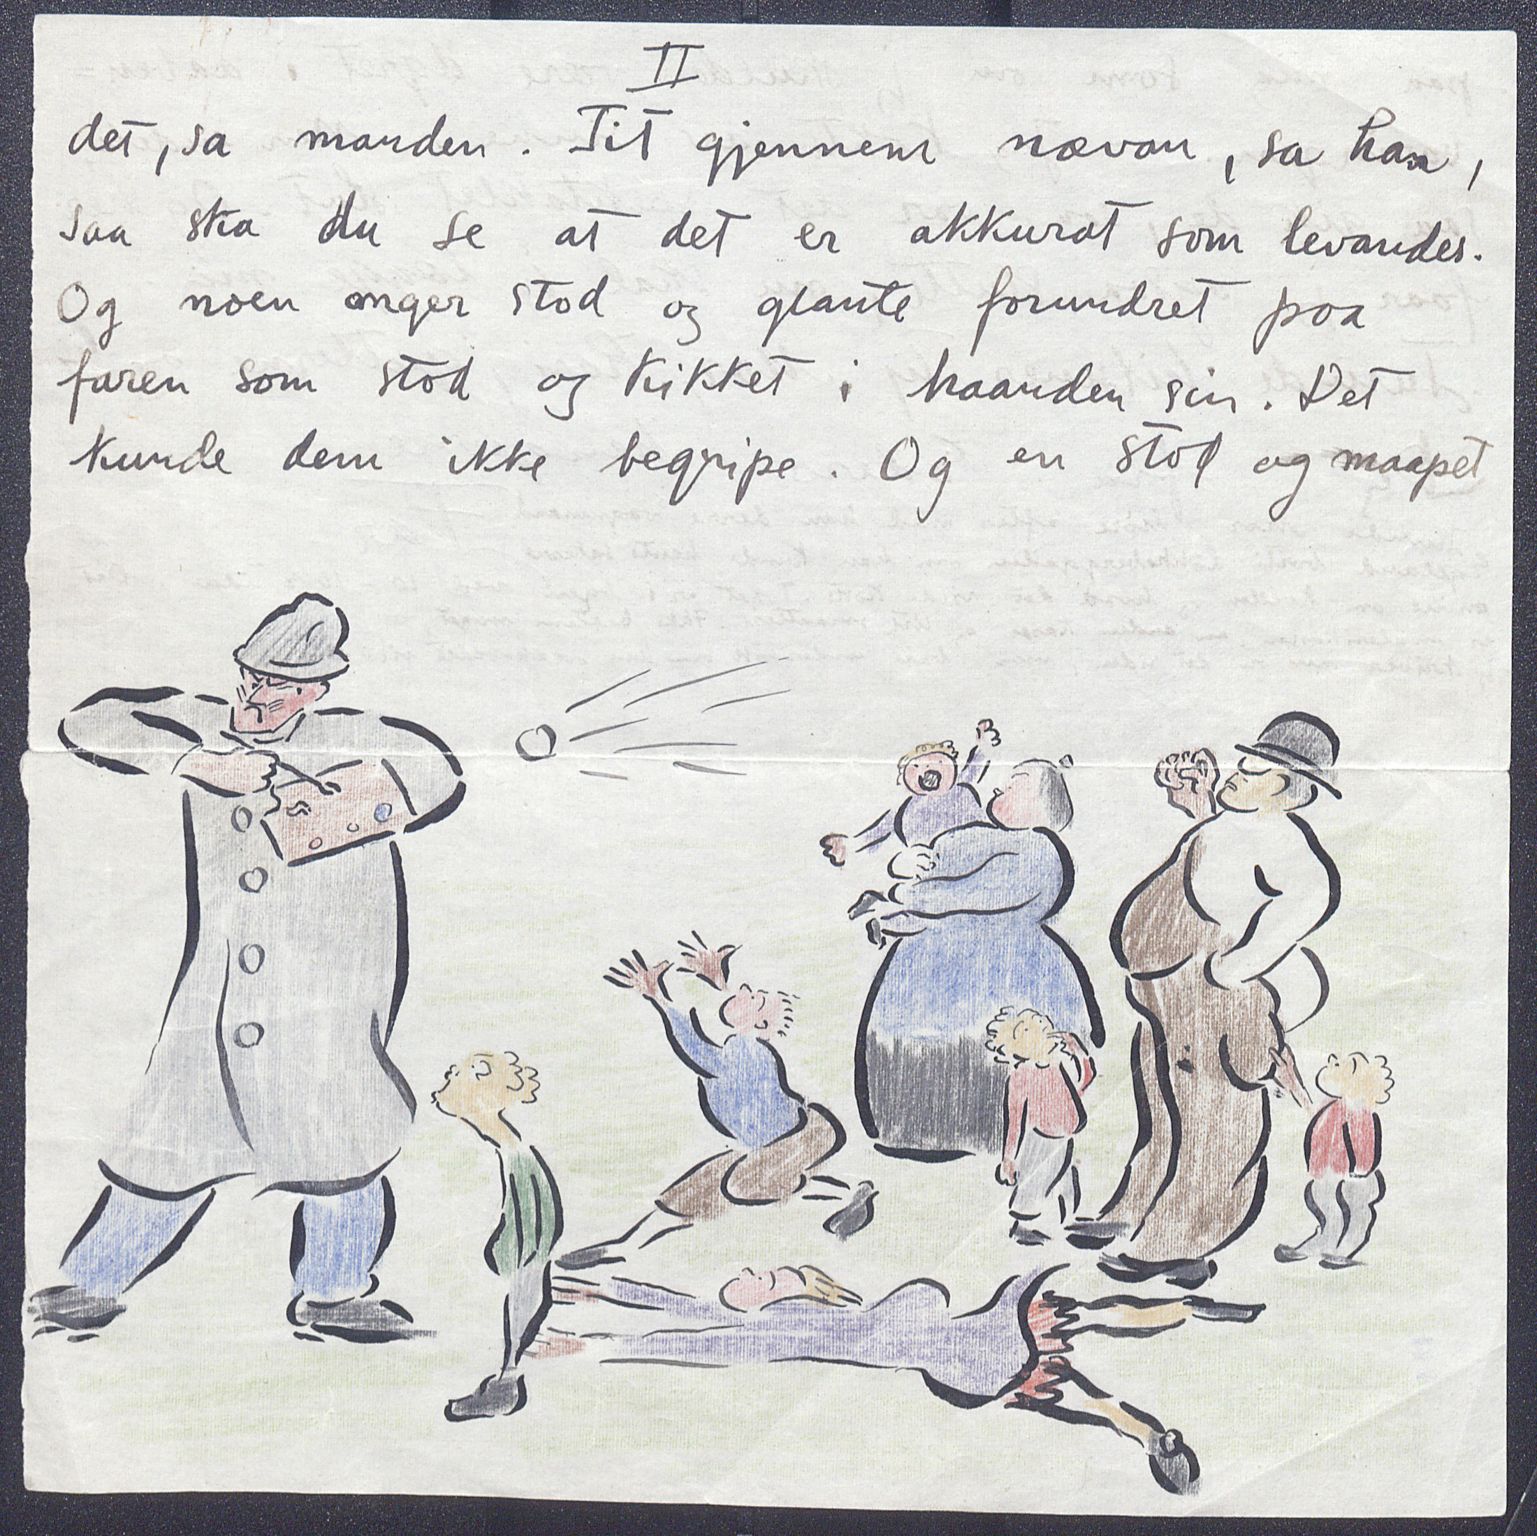 II
det, sa manden. Tit gjennem nævan, sa han,
saa ska du se at det er akkurat som levandes.
Og noen onger stod og glante forundret paa
faren som stod og kikket i haanden sin. Det
kunde dem ikke begripe. Og en stod og maapet